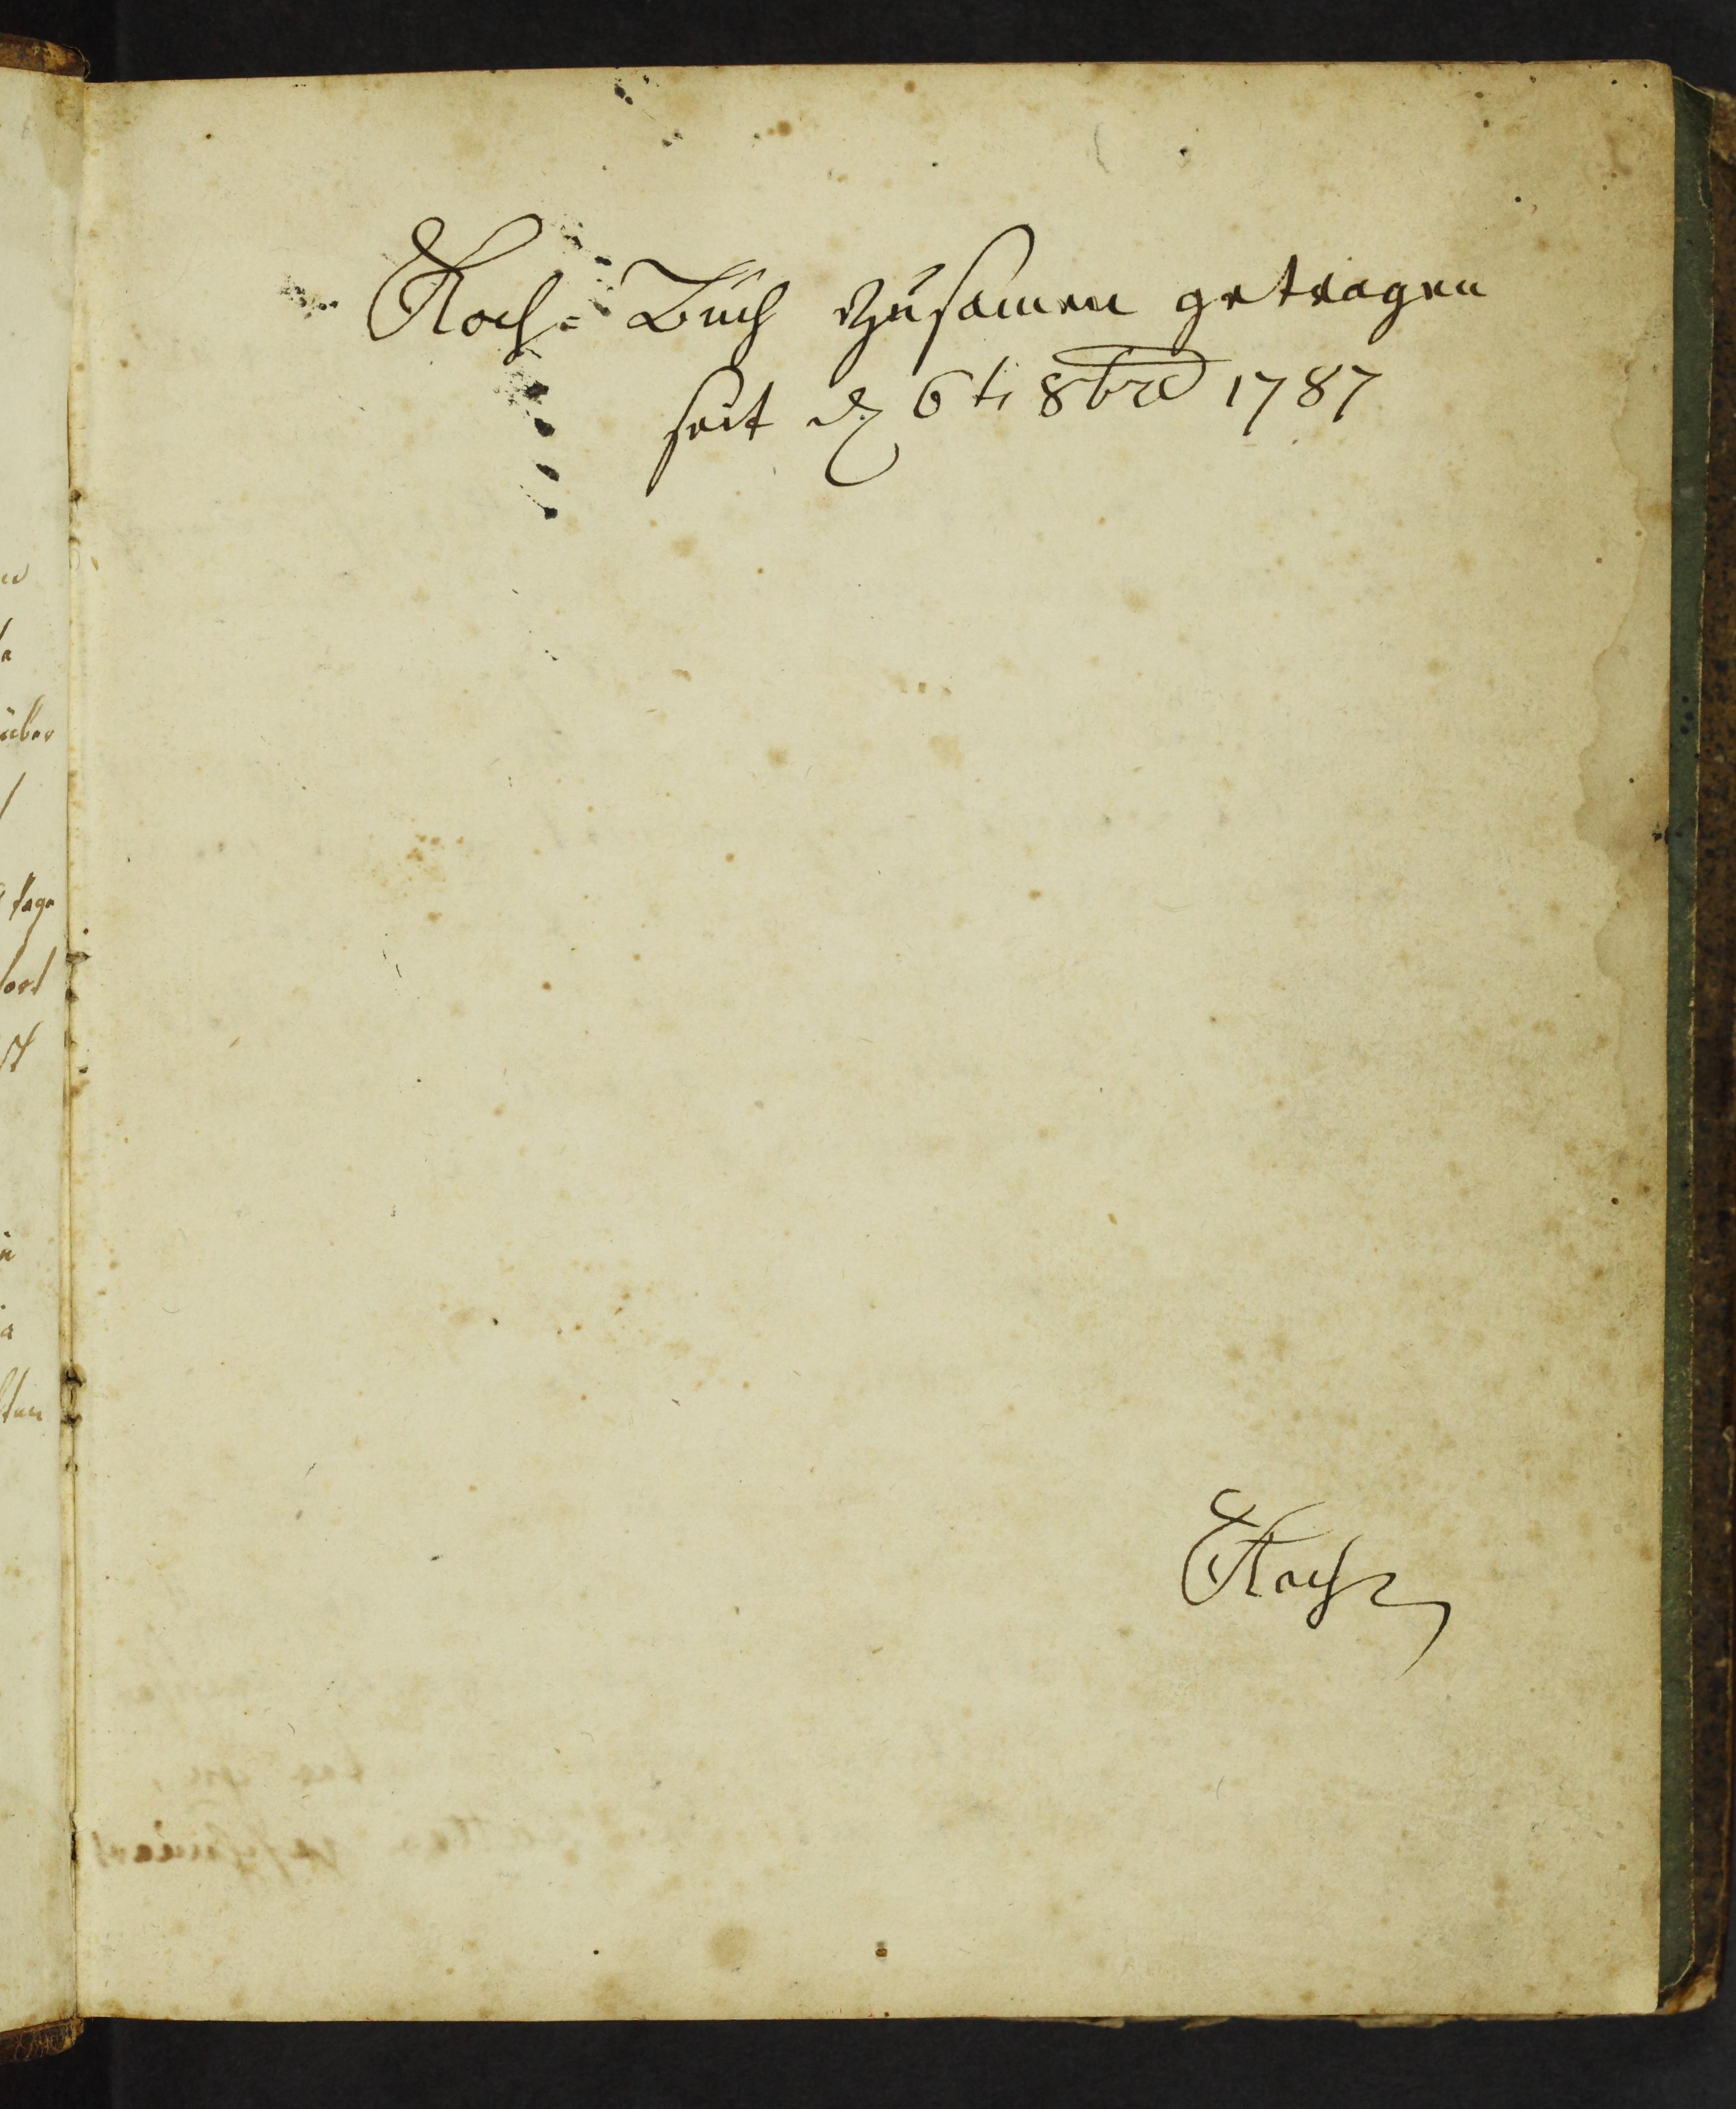 Koch= Buch zusamen getragen
seit d 6ti 8bre 1787
über
tage
Koch